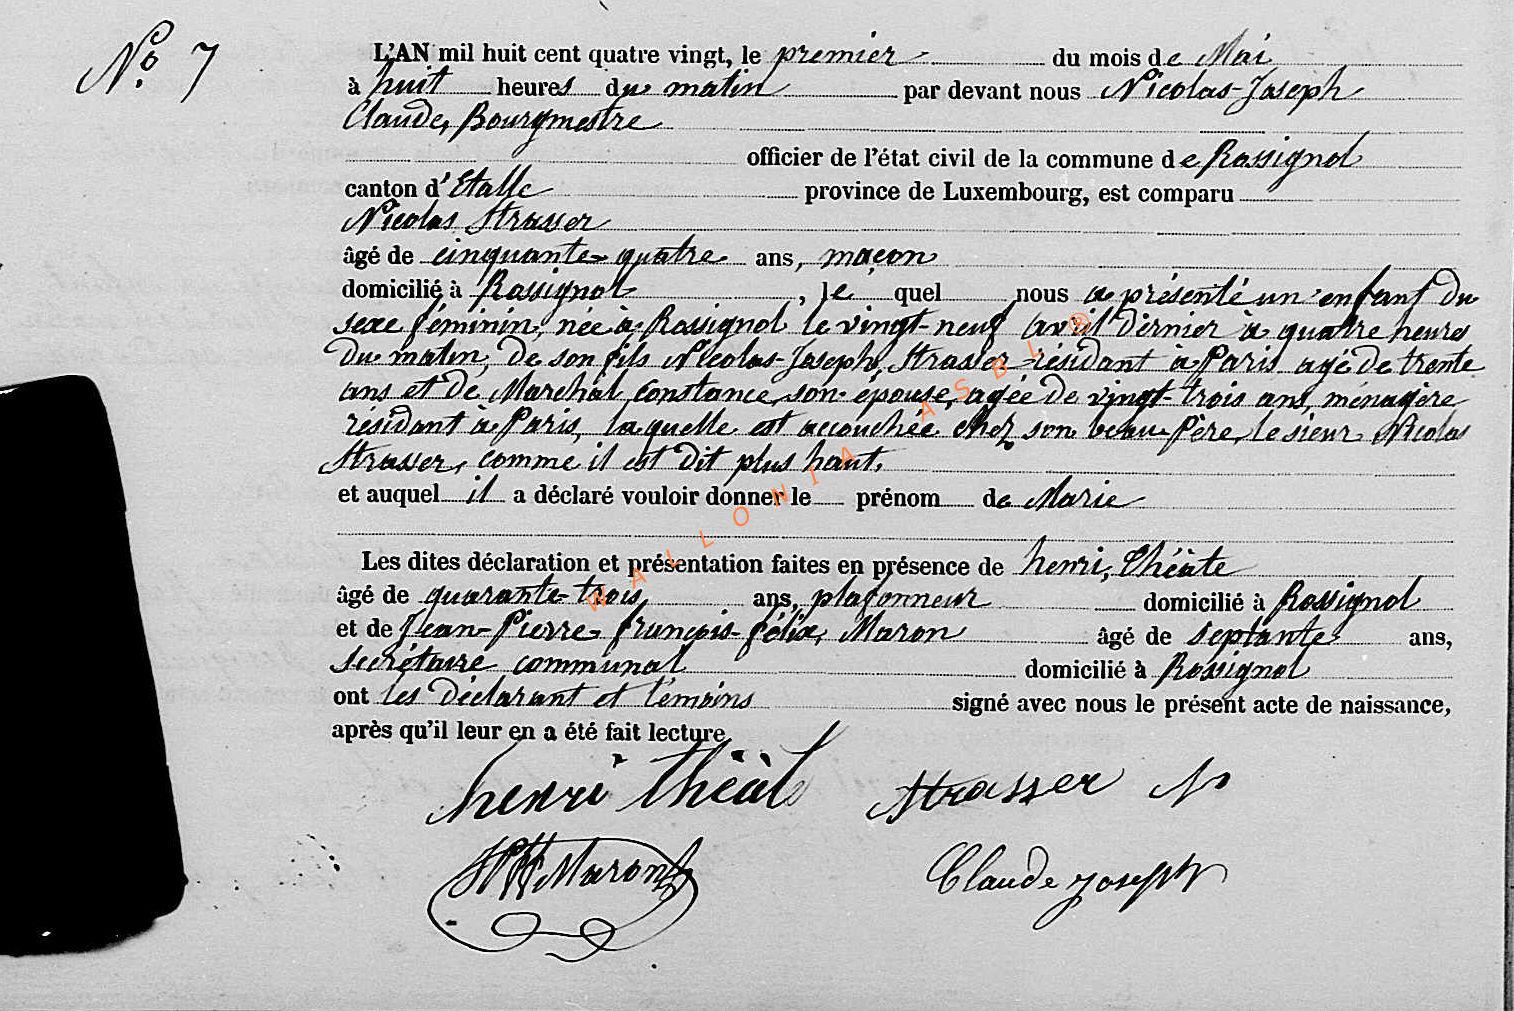 N° 7
L'AN mil huit cent quatre vingt, le premier du mois de Mai
à huit heures du matin par devant nous Nicolas-Joseph
Claude, Bourgmestre
officier de l'état civil de la commune de Rossignol
canton d'Etalle province de Luxembourg, est comparu
Nicolas Strasser
âgé de cinquante-quatre ans, maçon
domicilié à Rossignol, lequel nous a présenté un enfant du
sexe féminin, née à Rossignol le vingt-neuf avril dernier à quatre heures
du matin, de son fils Nicolas-Joseph, Strasser résidant à Paris agé de trente
ans et de Marchal, Constance, son épouse, agée de vingt-trois ans, ménagère
résidant à Paris, laquelle est accouchée chez son beau-Père, le sieur Nicolas
Strasser, comme il est dit plus haut.
et auquel il a déclaré vouloir donner le prénom de Marie
Les dites déclaration et présentation faites en présence de henri, Théâte
âgé de quarante-trois ans, plafonneur domicilié à Rossignol
et de Jean-Pierre-François-Félix, Maron âgé de septante ans,
secrétaire communal domicilié à Rossignol
ont les déclarant et témoins signé avec nous le présent acte de naissance,
après qu'il leur en a été fait lecture
henri Strasser N
Maron Claude Joseph
WALLONIA ASBL ®